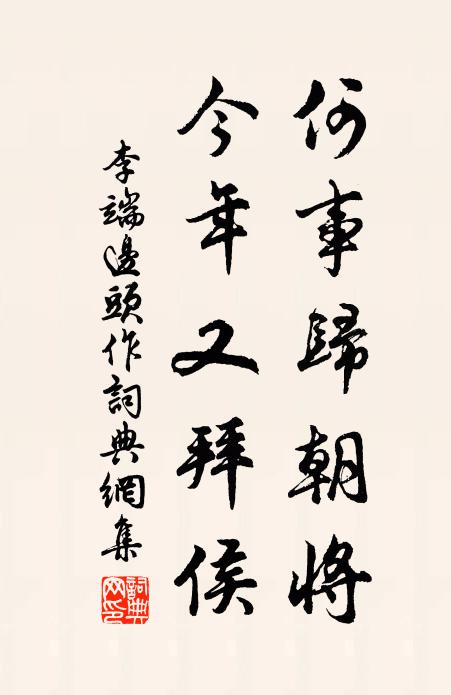 何事歸朝將
今年又拜侯
李端邊頭作詞典網集
詞典網印